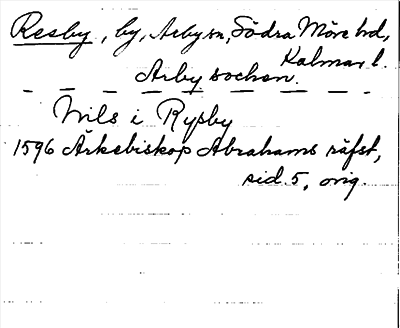 Resby, by, Arby sn, Södra Möre hd,
Kalmar l.
Arby socken.
Nils i Rysby
1596 Ärkebiskop Abrahams räfst,
sid. 5, orig.